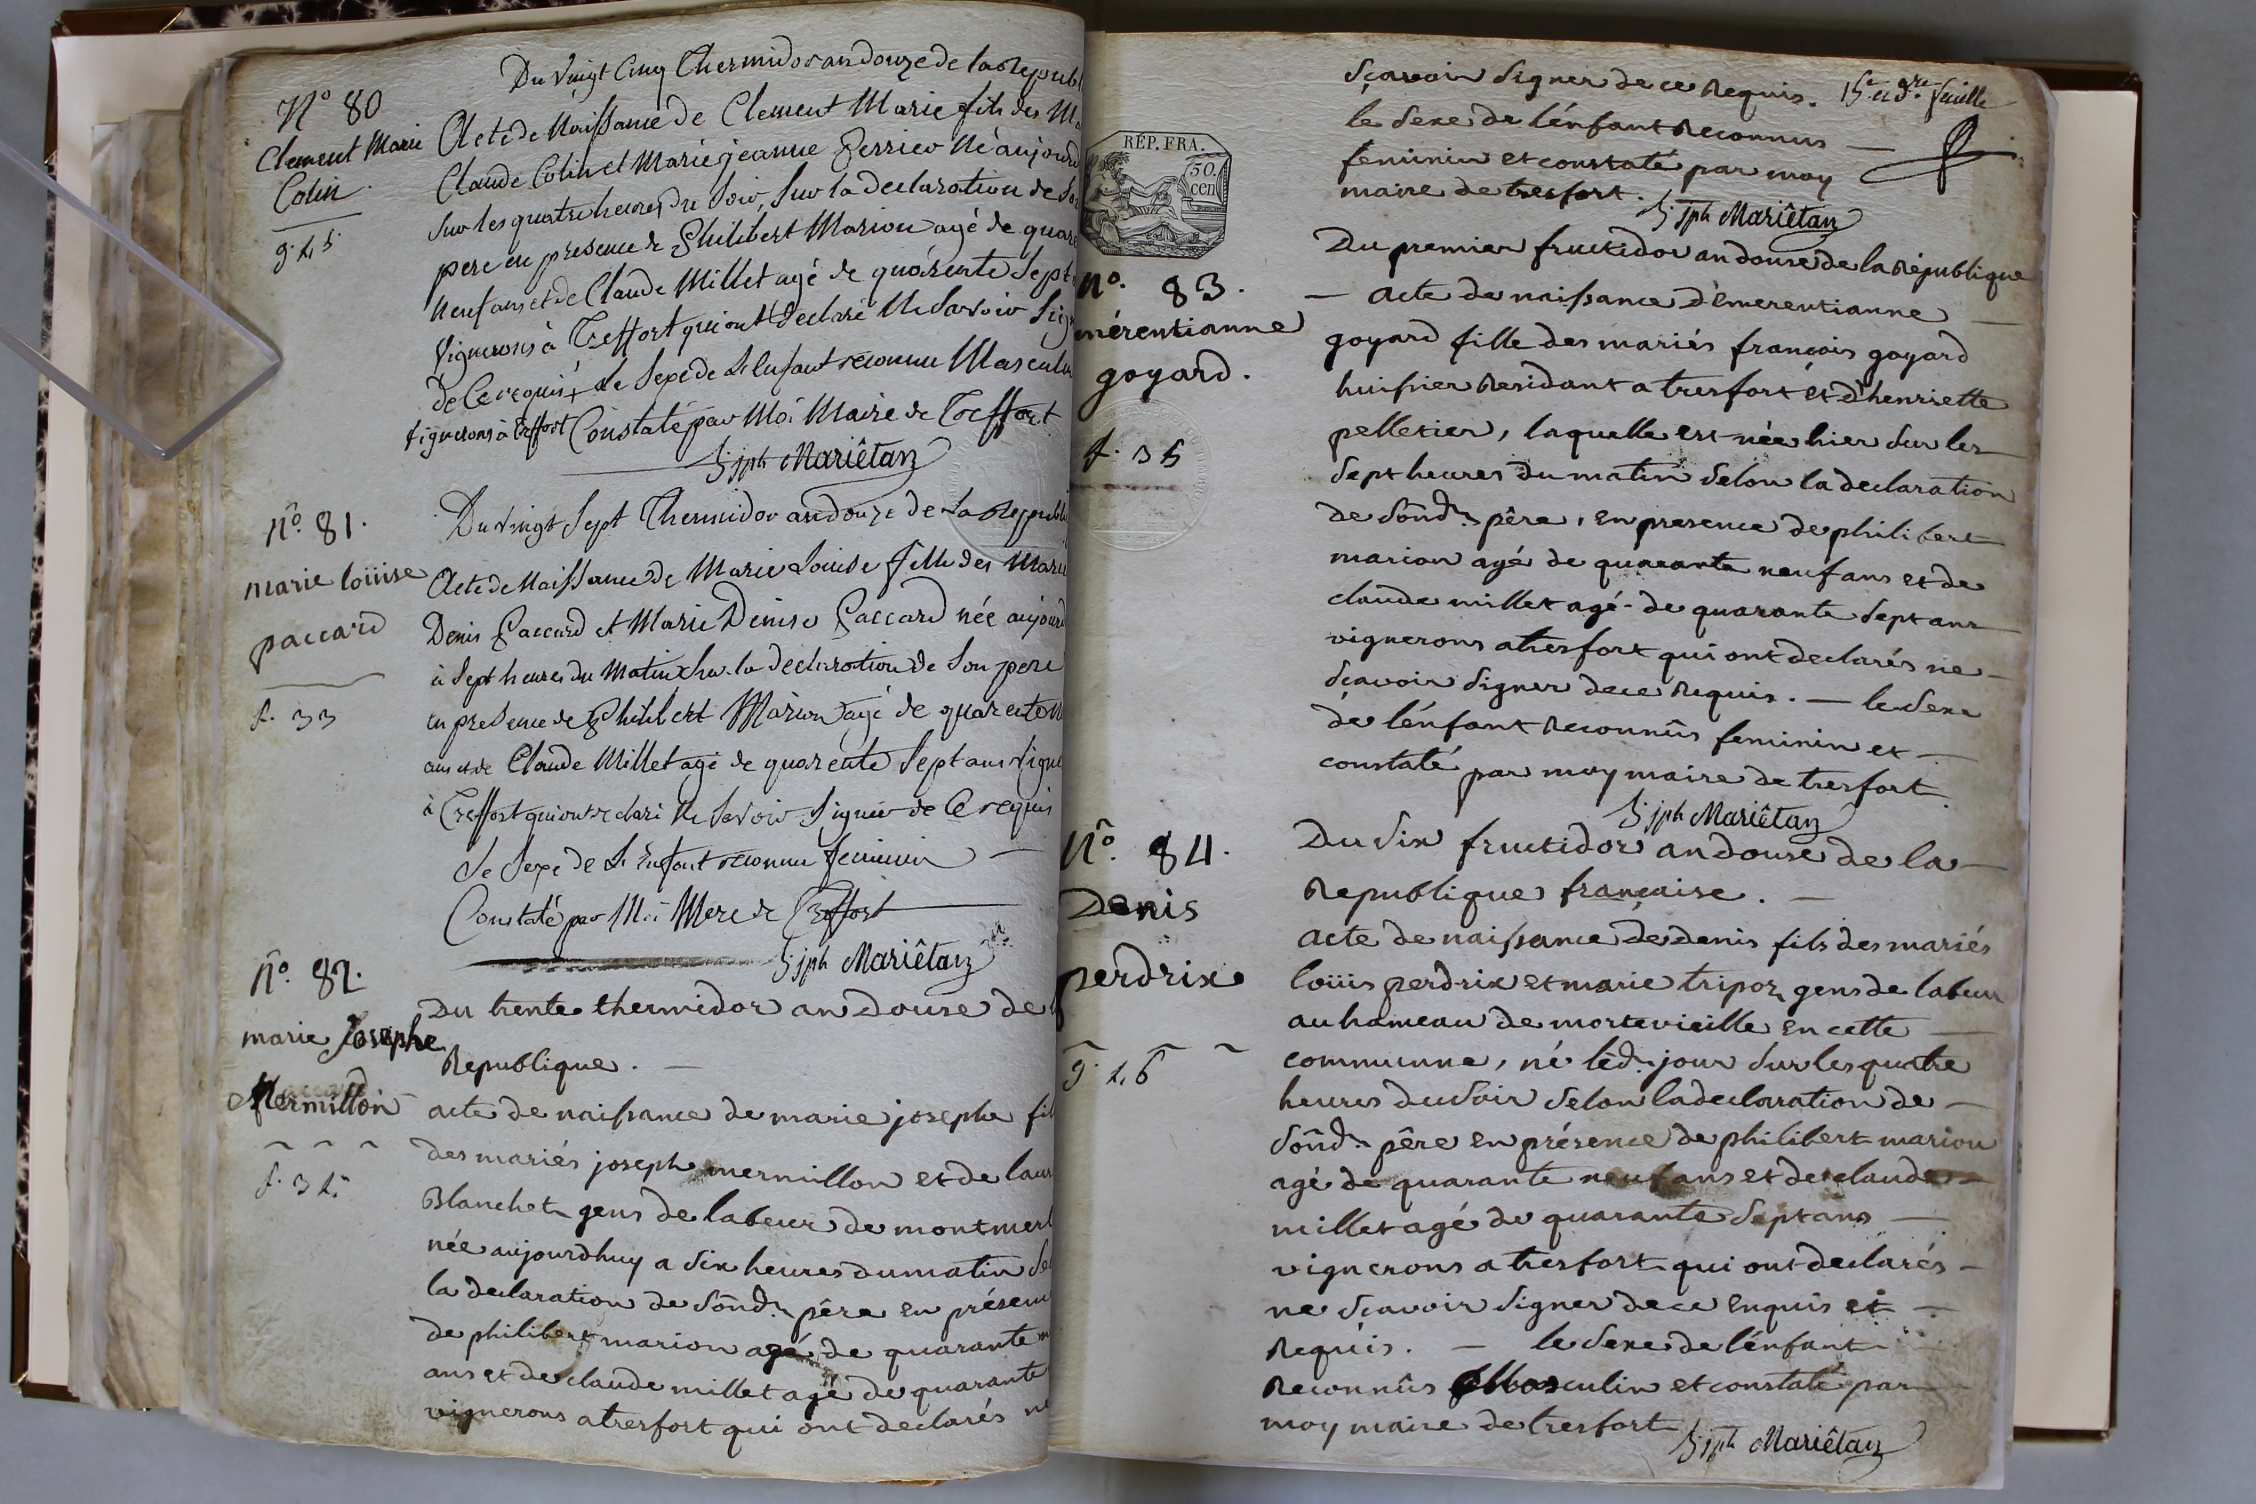 Du Vingt Cinq Thermidor an douze de la Republ
N° 80
Clement Marie
Colin
g. 45
Acte de Naissance de Clement Marie fils des Ma
Claude Colin et Marie jeanne Perrier Né aujourd
Sur les quatre heures du Soir, Sur la declaration de Son
pere en presence de Philibert Marion agé de quare
Neuf ans et de Claude Millet agé de quarente Sept
Vignerons à Treffort qui ont declaré Ne Savoir Sign
de Ce requis + Le Sexe de L'enfant reconnu Masculin
Vignerons à Treffort Constaté par Moi Maire de Treffort
J jph Mariêtan
N° 81.
marie loüise
paccard
f. 33
Du Vingt Sept Thermidor an douze de La Republi
Acte de Naissance de Marie Louise fille des Marié
Denis Paccard et Marie Denise Paccard née aujourd
à Sept heures du Matin Sur la declaration de Son pere
en presence de Philibert Marion agé de quarente N
ans et de Claude Millet agé de quarente Sept ans Vigne
à Treffort qui ont declaré Ne Savoir Signer de Ce requis
Le Sexe de L'Enfant reconnu feminin
Constaté par Moi Mere de Treffort
J jph Mariêtan
N° 82.
marie Josephe
Mermillon
f. 34
Du trente thermidor an douse de l
Republique.
acte de naissance de marie josephe fil
des mariés joseph mermillon et de laur
Blanchet gens de labeur de montmerl
née aujourdhuy a six heures du matin Se
la declaration de Sond. pêre en présenc
de philibert marion agé de quarante n
ans et de claude millet agé de quarante
vignerons a tresfort qui ont declarés ne
Sçavoir Signer de ce Requis.
15e et dre feuille
le Sexe de l'énfant Reconnus
feminin et constaté par moy
maire de tresfort.
J jph Mariêtan
RÉP. FRA.
50.
cen
N° 83.
mérentianne
goyard.
f. 35
Du premier fructidor an douse de la République
acte de naissance d'émerentianne
goyard fille des mariés françois goyard
huissier Residant a tresfort et d'henriette
pelletier, laquelle est née hier Sur les
Sept heures du matin Selon la declaration
de Sond. pêre, en presence de philibert
marion agé de quarante neuf ans et de
claude millet agé de quarante Sept ans
vignerons a tresfort qui ont declarés ne
Sçavoir Signer de ce Requis. le Sexe
de l'énfant Reconnûs feminin et
constaté par moy maire de tresfort.
J jph Mariêtan
N° 84.
Denis
perdrix
g. 46
Du Six fructidor an douse de la
Republique française.
acte de naissance de Denis fils des mariés
loüis perdrix et marie tripoz gens de labeur
au hameau de mortevieille en cette
communne, né léd. jour Sur les quatre
heures du Soir Selon la declaration de
Sond. pêre en présence de philibert marion
agé de quarante neuf ans et de claude
millet agé de quarante Sept ans
vignerons a tresfort qui ont declarés
ne Sçavoir Signer de ce enquis et
Requis. le Sexe de l'énfant
Reconnûs Masculin et constaté par
moy maire de tresfort
J jph Mariêtan